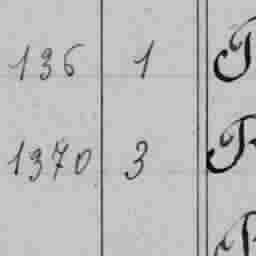 136 1
1370 3